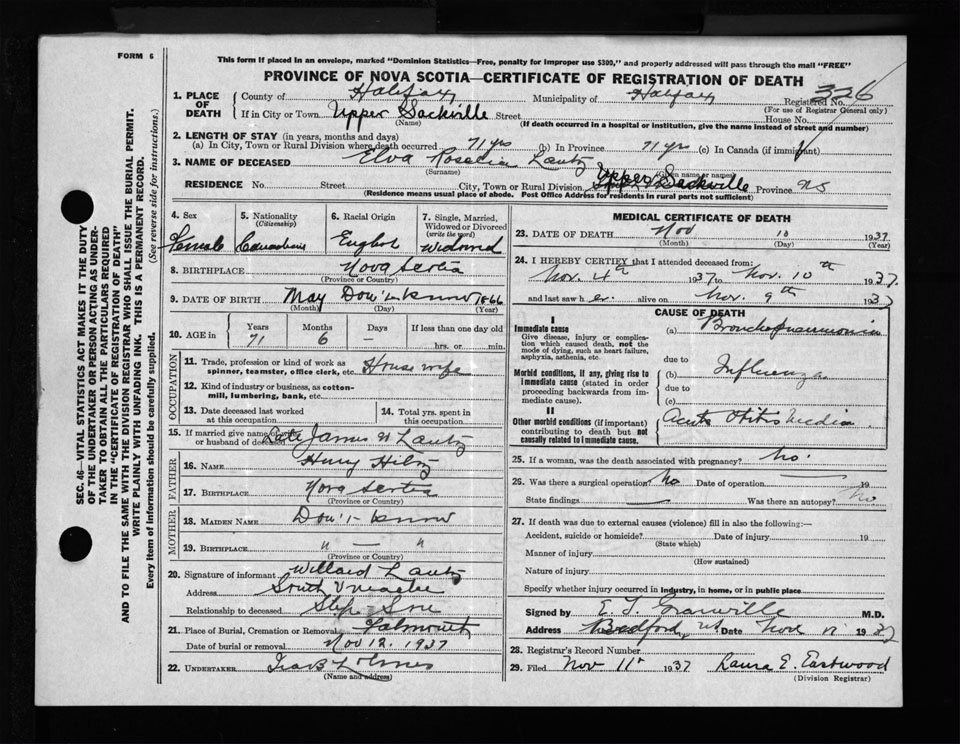 FORM 6
This form if placed in an envelope, marked "Dominion Statistics—Free, penalty for improper use $300," and properly addressed will pass through the mail "FREE"
PROVINCE OF NOVA SCOTIA—CERTIFICATE OF REGISTRATION OF DEATH
1. PLACE OF DEATH
County of Halifax Municipality of Halifax Registered No. 326
(For use of Registrar General only)
If in City or Town Upper Sackville Street House No.
(Name) (If death occurred in a hospital or institution, give the name instead of street and number)
2. LENGTH OF STAY (in years, months and days)
(a) In City, Town or Rural Division where death occurred 71 yrs (b) In Province 71 yrs (c) In Canada (if immigrant)
3. NAME OF DECEASED Elva Rosalia Lantz
(Surname) name or names)
RESIDENCE No. Street City, Town or Rural Division Upper Sackville Province NS
(Residence means usual place of abode. Post Office Address for residents in rural parts not sufficient)
4. Sex Female
5. Nationality (Citizenship) Canadian
6. Racial Origin English
7. Single, Married, Widowed or Divorced (write the word) widowed
8. BIRTHPLACE Nova Scotia
(Province or Country)
9. DATE OF BIRTH May Don't know 1866
(Month) (Day) (Year)
10. AGE in Years 71 Months 6 Days — If less than one day old hrs. or min.
OCCUPATION
11. Trade, profession or kind of work as spinner, teamster, office clerk, etc. House wife
12. Kind of industry or business, as cotton-mill, lumbering, bank, etc.
13. Date deceased last worked at this occupation
14. Total yrs. spent in this occupation
15. If married give name of wife or husband of deceased Late James W Lantz
FATHER
16. NAME Henry Hiltz
17. BIRTHPLACE Nova Scotia
(Province or Country)
MOTHER
18. MAIDEN NAME Don't know
19. BIRTHPLACE " — "
(Province or Country)
20. Signature of informant Willard Lantz
Address South Uniacke
Relationship to deceased Step Son
21. Place of Burial, Cremation or Removal Falmouth
Date of burial or removal Nov 12, 1937
22. UNDERTAKER Holmes
(Name and address)
MEDICAL CERTIFICATE OF DEATH
23. DATE OF DEATH Nov 10 1937
(Month) (Day) (Year)
24. I HEREBY CERTIFY that I attended deceased from:
Nov. 4th 1937 to Nov. 10th 1937
and last saw her alive on Nov. 9th 1937
CAUSE OF DEATH
I
Immediate cause
Give disease, injury or complication which caused death, not the mode of dying, such as heart failure, asphyxia, asthenia, etc.
(a) Bronchopneumonia
due to
Morbid conditions, if any, giving rise to immediate cause (stated in order proceeding backwards from immediate cause).
(b) Influenza
due to
(c)
II
Other morbid conditions (if important) contributing to death but not causally related to immediate cause.
Acute Otitis Media
25. If a woman, was the death associated with pregnancy? No.
26. Was there a surgical operation No Date of operation — 19
State findings Was there an autopsy? No
27. If death was due to external causes (violence) fill in also the following:—
Accident, suicide or homicide? Date of injury 19
(State which)
Manner of injury
(How sustained)
Nature of injury
Specify whether injury occurred in industry, in home, or in public place
Signed by E. T. Granville M.D.
Address Bedford, NS Date Nov 1937
28. Registrar's Record Number
29. Filed Nov 11th 1937 Laura E. Eastwood
(Division Registrar)
SEC. 46—VITAL STATISTICS ACT MAKES IT THE DUTY
OF THE UNDERTAKER OR PERSON ACTING AS UNDER-
TAKER TO OBTAIN ALL THE PARTICULARS REQUIRED
IN THE "CERTIFICATE OF REGISTRATION OF DEATH"
AND TO FILE THE SAME WITH THE DIVISION REGISTRAR WHO SHALL ISSUE THE BURIAL PERMIT.
WRITE PLAINLY WITH UNFADING INK. THIS IS A PERMANENT RECORD.
Every item of information should be carefully supplied. (See reverse side for instructions.)